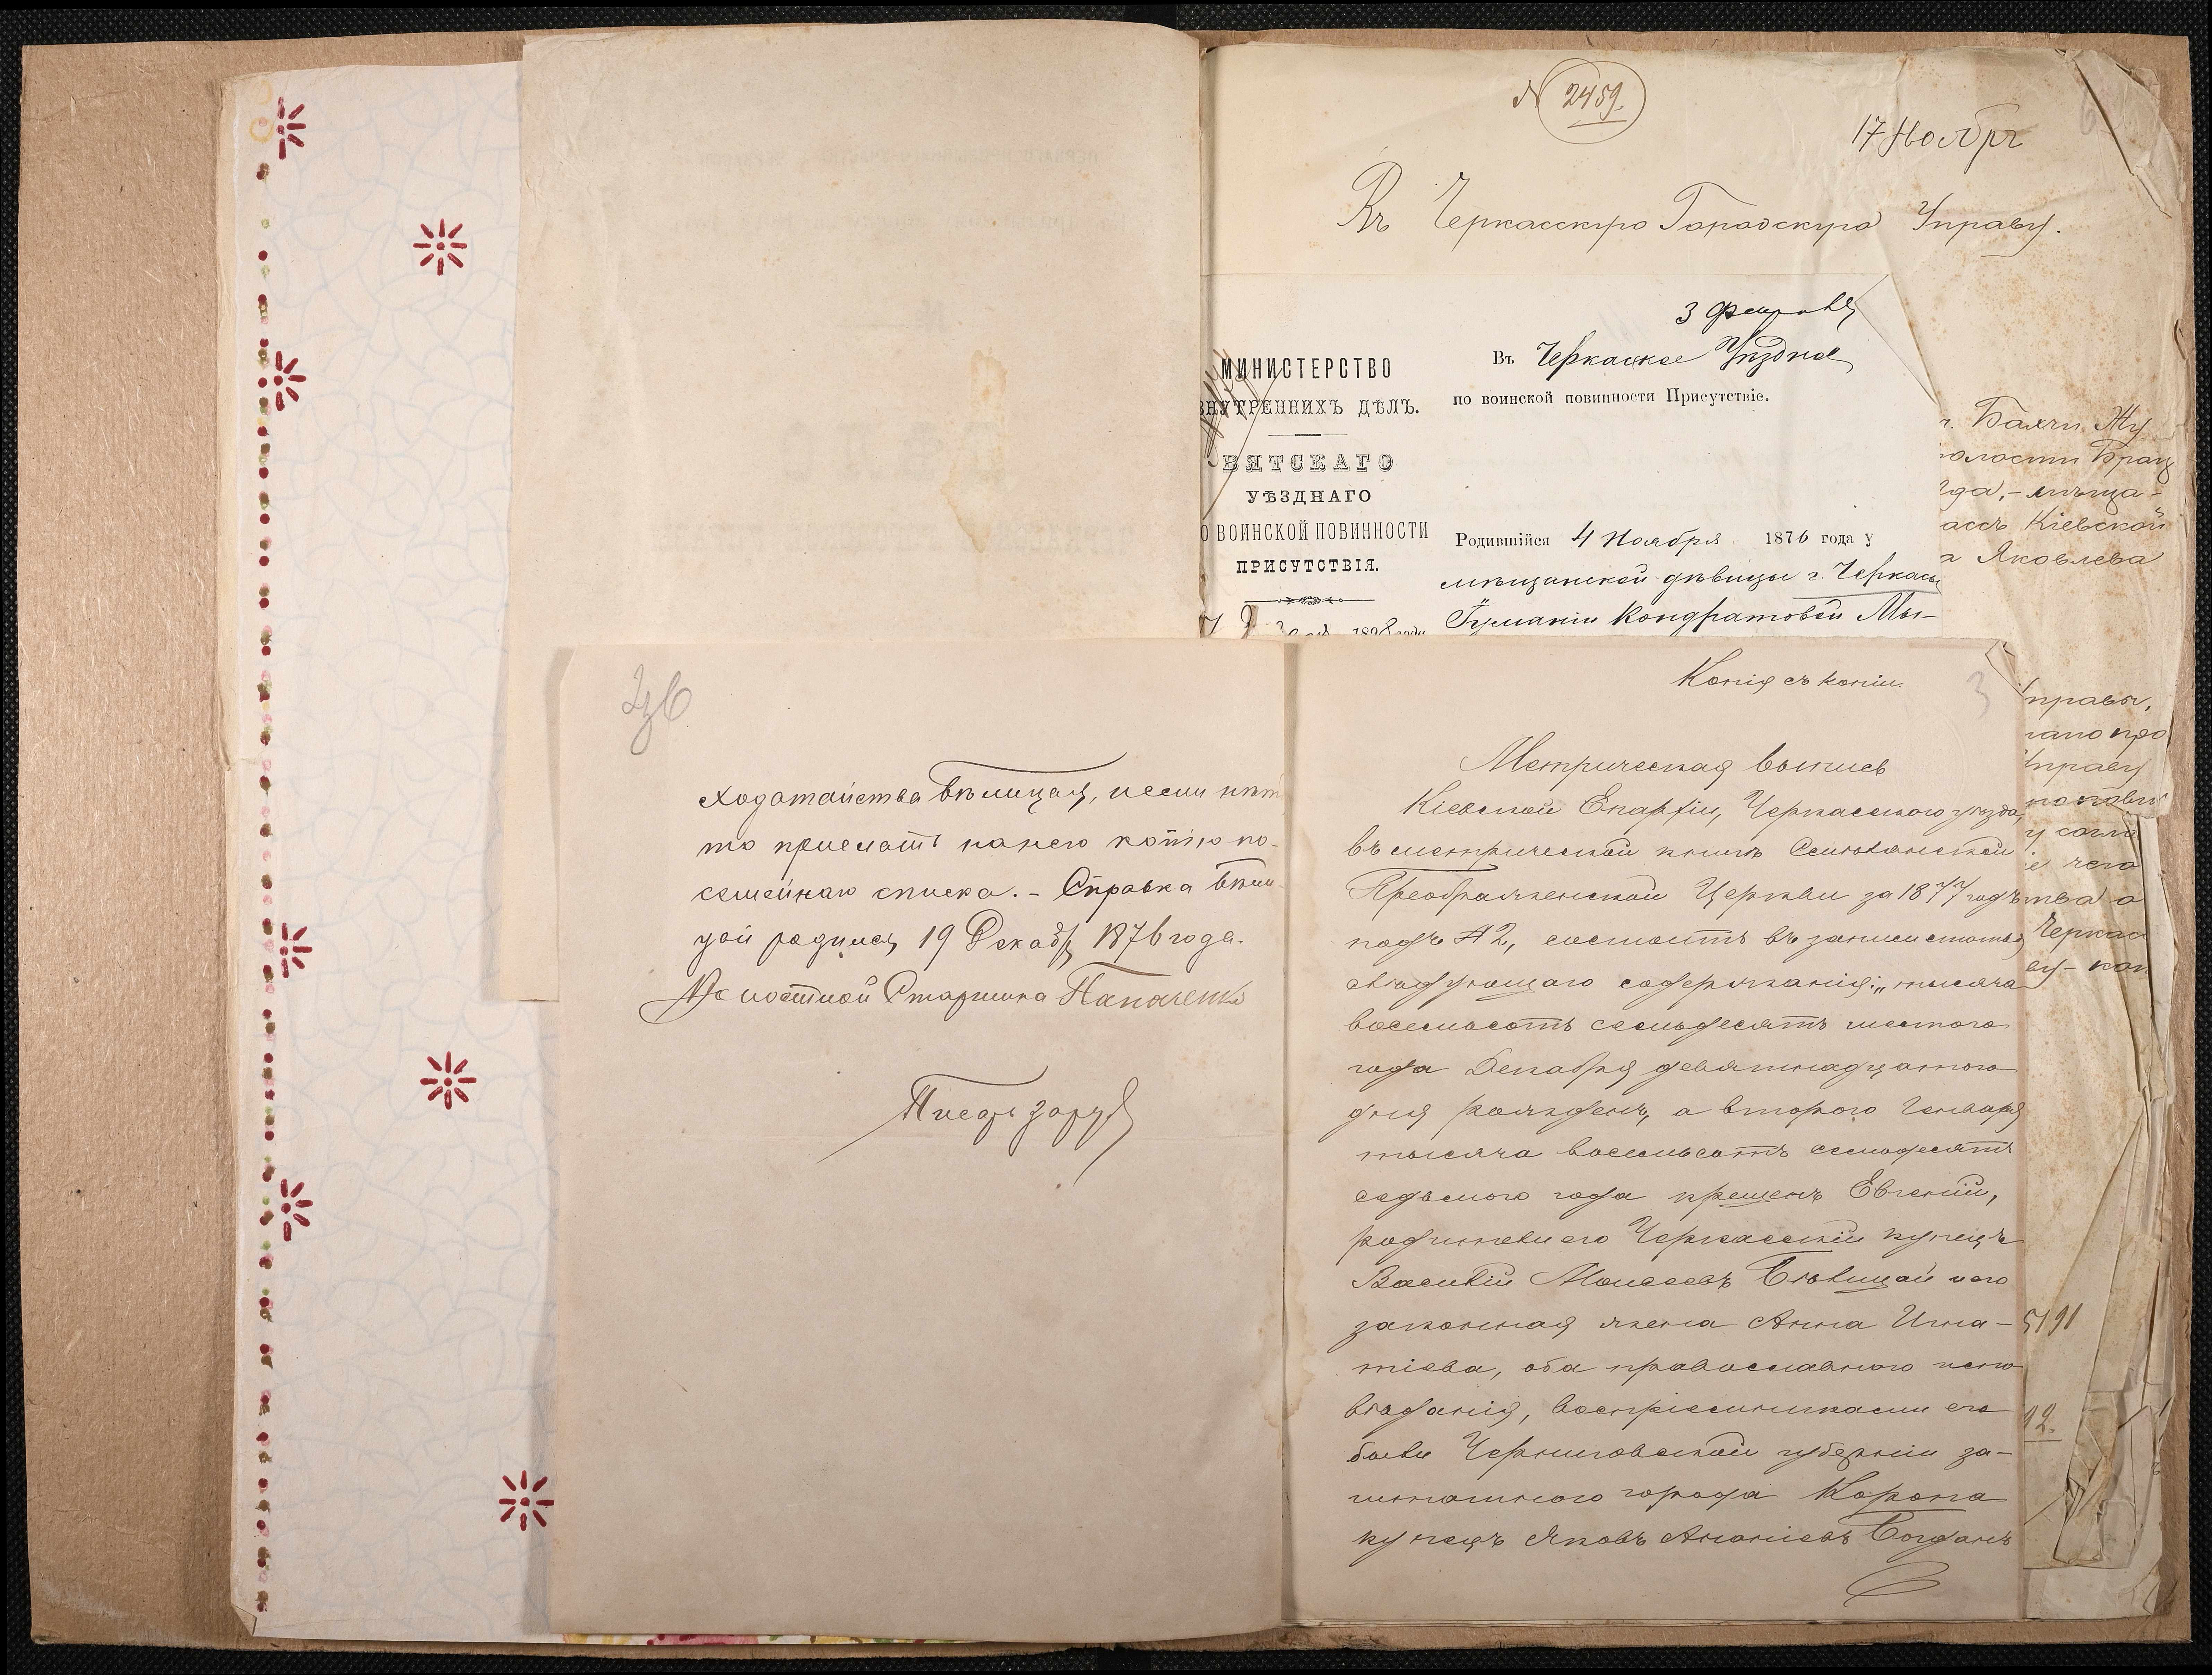 N 2459.
17 Ноября
Въ Черкасскую Городскую Управу.
МИНИСТЕРСТВО
ВНУТРЕННИХЪ ДѢЛЪ.
ВЯТСКАГО
УѢЗДНАГО
О ВОИНСКОЙ ПОВИННОСТИ
ПРИСУТСТВІЯ.
189 года
3 Февраля
Въ Черкаское Уѣздное
по воинской повинности Присутствіе.
Родившійся 4 Ноября 1876 года у
мѣщанской дѣвицы г. Черкасы
Іуманіи Кондратовой Мы-
г. Балчи Жу
волости Брац
да, - мѣща-
ассъ Кіевской
а Яковлева
управы,
Управу
Черкас
5191
12.
3об
ходатайства Бѣлицая, и если нѣтъ
то прислать на него копію по-
семейнаго списка. - Справка Бѣли-
цай родился 19 Декабр 1876 года.
Волостной Старшина Панченко
Писарь
3
Копія съ копіи.
Метрическая выпись
Кіевской Епархіи, Черкасского уѣзда,
въ метрической книгѣ Смѣлянской
Преображенской Церкви за 1877 годъ
подъ № 2, состоитъ въ записи статья
слѣдующаго содержанія: „тысяча
восемьсотъ семьдесятъ шестого
года Декабря девятнадцатого
дня рожденъ, а второго Генваря
тысяча восемьсотъ семьдесятъ
седьмого года крещенъ Евгеній,
родители его Черкасскій купецъ
Василій Моисеевъ Бѣлицай и его
законная жена Анна Игна-
тіева, оба православного испо-
вѣданія, воспріемниками его
были Черниговской губерніи за-
штатного города Коропа
купецъ Яковъ Ананіевъ Богданъ